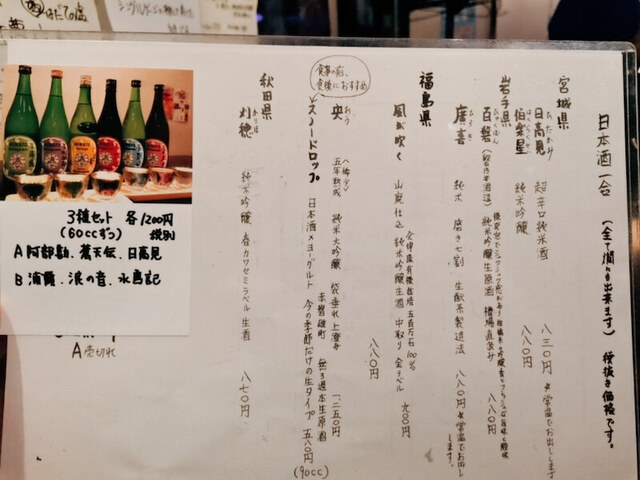 日本酒一合 (全て燗も出来ます) 税抜き価格です。
宮城県
日高見 超辛口純米酒 八三〇円 ※常温でお出します
ひたかみ
伯楽星 純米吟醸 八八〇円
はくらくせい
岩手県
百磐 純米吟醸生原酒 槽場直汲み 八八〇円
廣喜 純米 磨き七割 生酛系製造法 八八〇円 ※常温でお出しします。
福島県
風が吹く 山廃仕込 純米吟醸生酒 中取り 金ラベル
会津産有機栽培 五百万石 100%
八八〇円
食事の前、
食後におすすめ
央 五年熟成 純米大吟醸 袋垂れ上澄み 一二五〇円
赤磐雄町 無ろ過本生原酒
スノードロップ 日本酒×ヨーグルト 今の季節だけの生タイプ 五八〇円
(90cc)
秋田県
刈穂 純米吟醸 春カワセミラベル 生酒 八七〇円
3種セット 各1200円
(60ccずつ) 税別
A 阿部勘、蒼天伝、日高見
B 浦霞、浪の音、水鳥記
A 売切れ